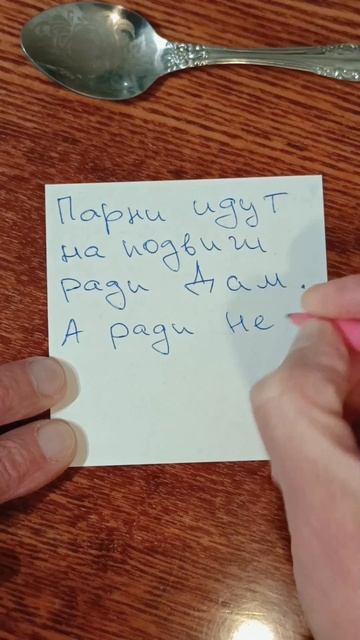 Парни идут
на подвиги
ради Дам.
А ради не